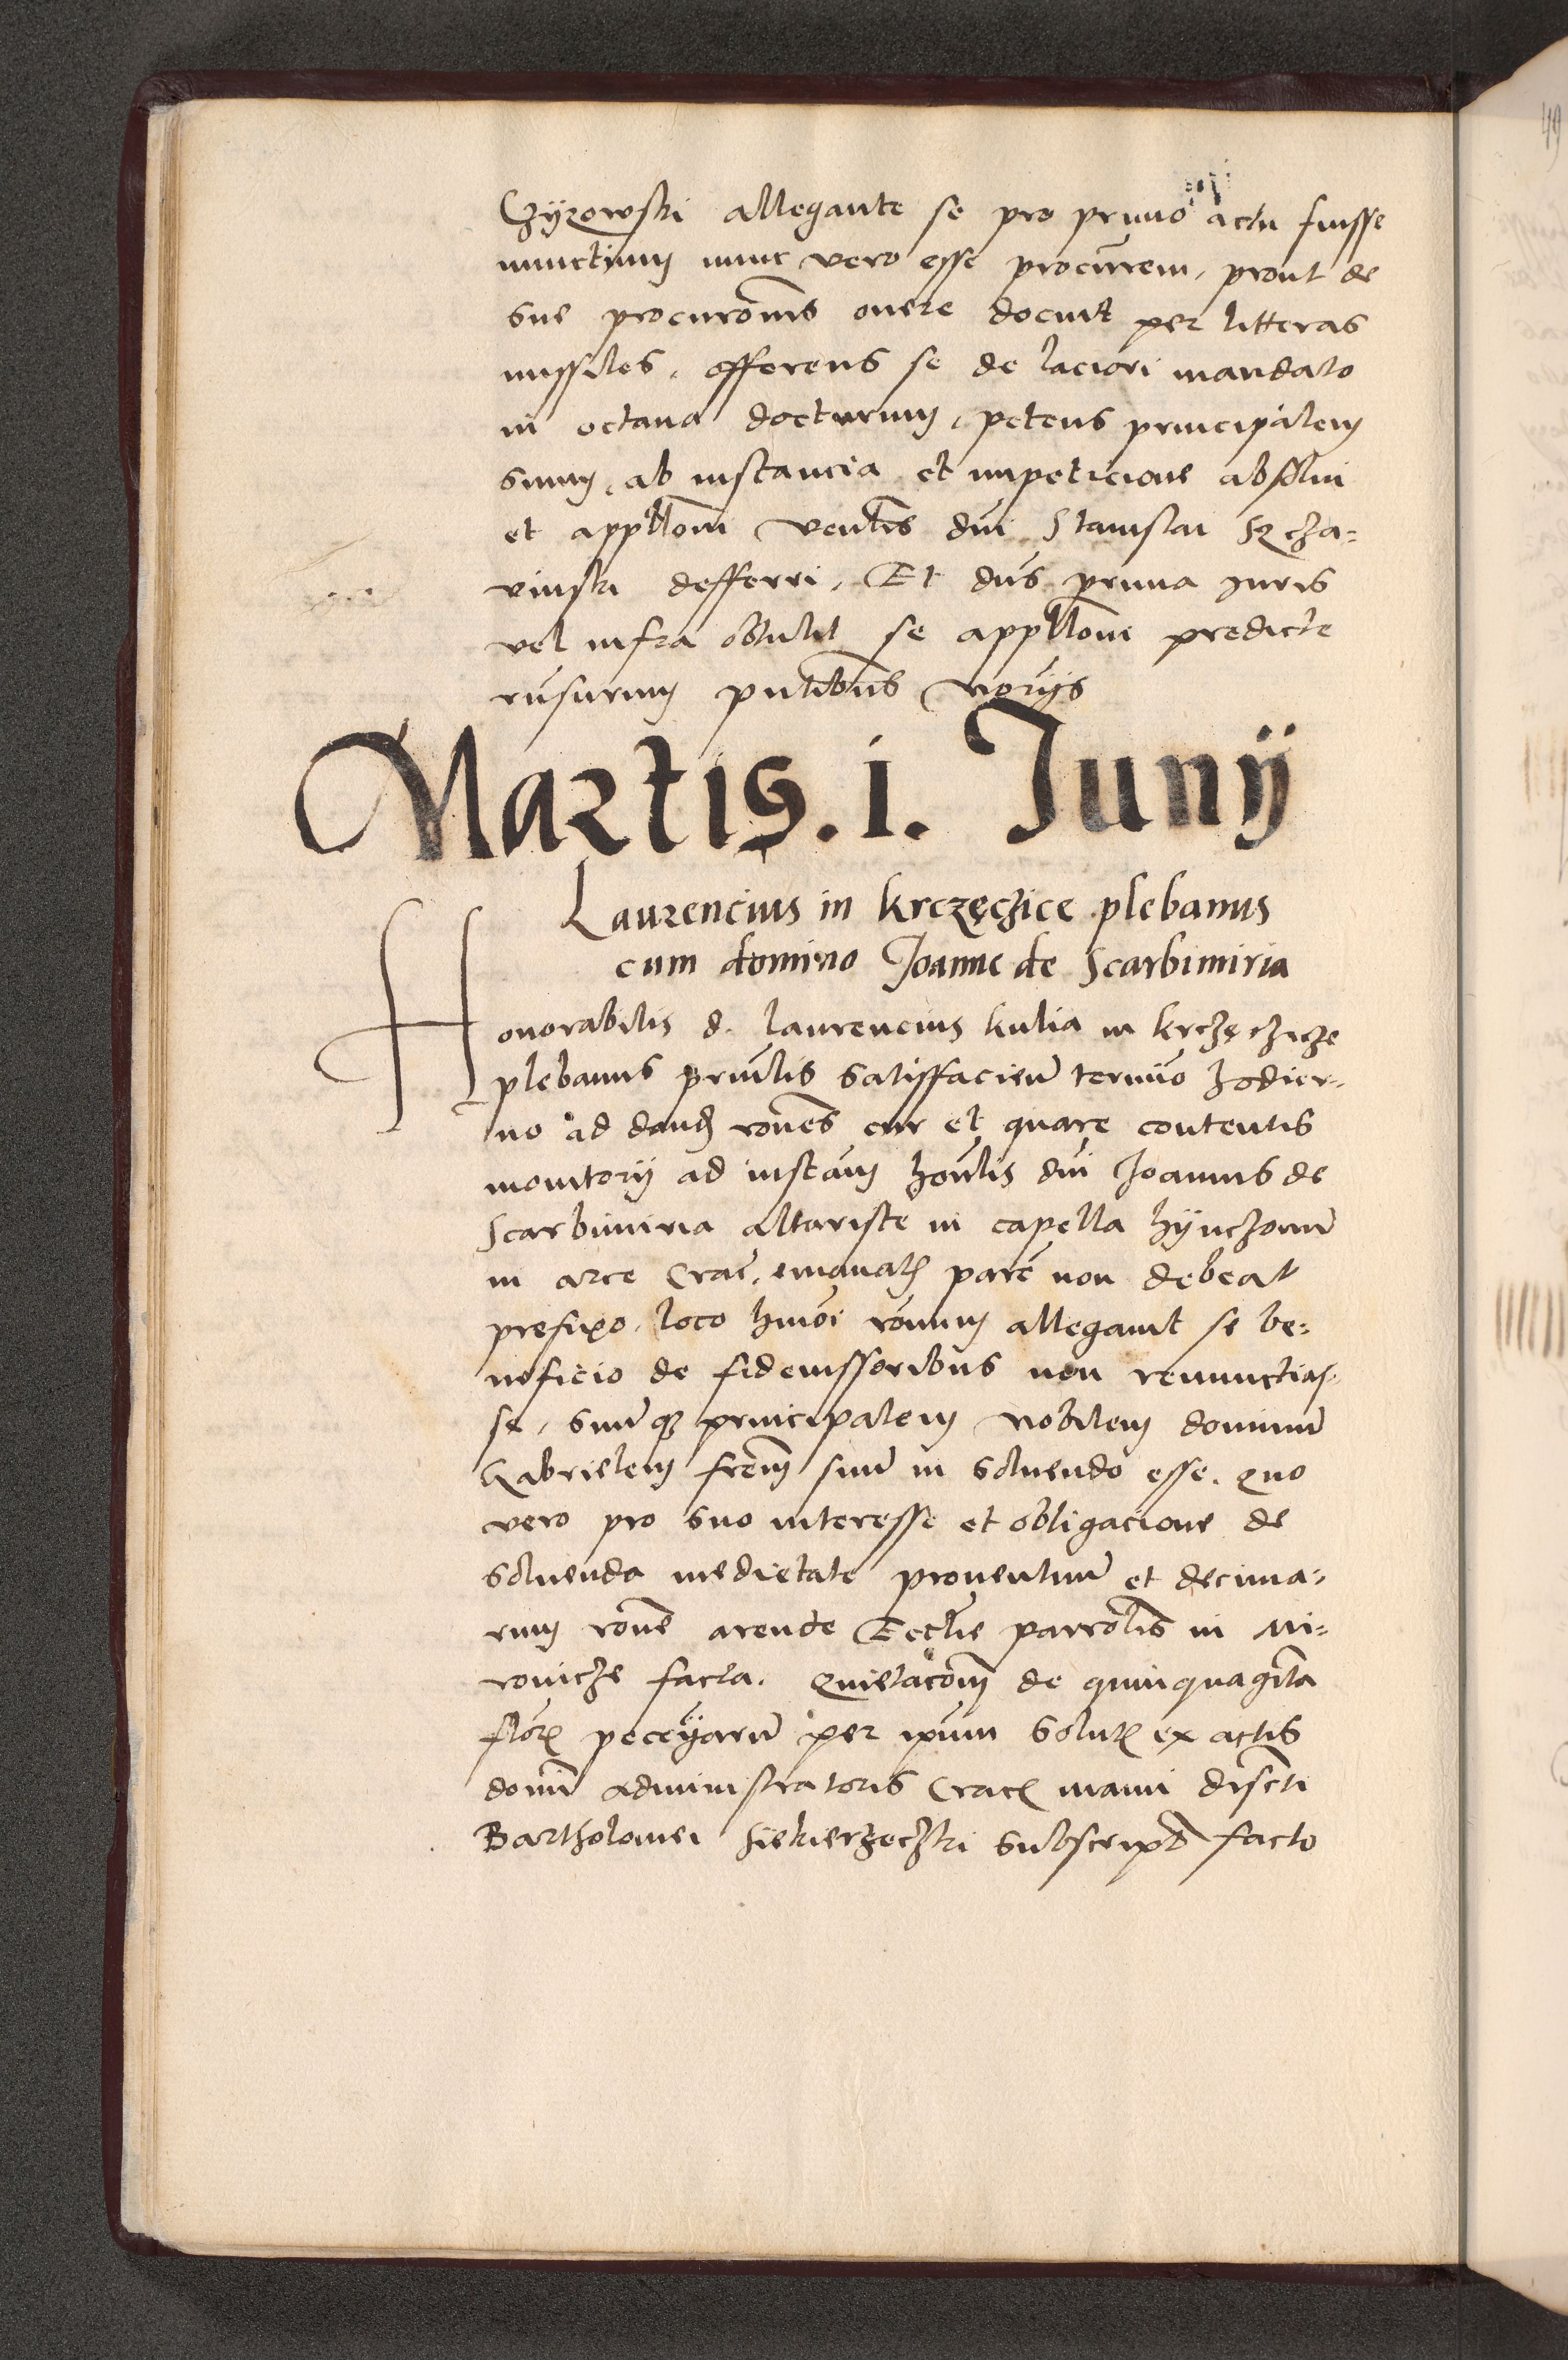 Czÿzowski allegante se pro primo actu fuisse
nunctium nunc vero esse procurem, prout de
sue procuronis onere docuit per litteras
missiles, offerens se de laciori mandato
in octava docturum, petens principalem
suum, ab instancia et impeticione absolvi
et appllom venlis dni Stanislai
vinski defferri, Et dns prima Iuris
vel infra obtulit se appllone predicte
rnsurum pntibus
Martis. i. Junÿ
Laurencius in krczęczice plebanus
cum domino Joanne de Scarbimiria
Honorabilis d. laurencius kulia in krczęczicze
plebanus pnlis satisffaciem termino hodier-
no ad dand rones cur et quare contentis
monitorÿ ad instam honlis dni Joannis de
Scarbimiria altariste in capella hÿnczonum
in arce Crac. emanat pare non debeat
prefixo, loco hmoi ronum allegavit se be=
neficio de fideiussoribus non renunctias-
se, suumq principalem nobilem dominum
Gabrielem frem suum in solvendo esse. quo
vero pro suo interesse et obligacione de
solvenda medietate proventuum et decima-
rum rone arende Ecclie parrolis in Mi=
ronicze facta. Quietacom de quinquaginta
flor pecuÿarum per ipsum solut ex actis
domi administratoris Crac manu discti
Bartholomei Siekierzeczki subscript facto